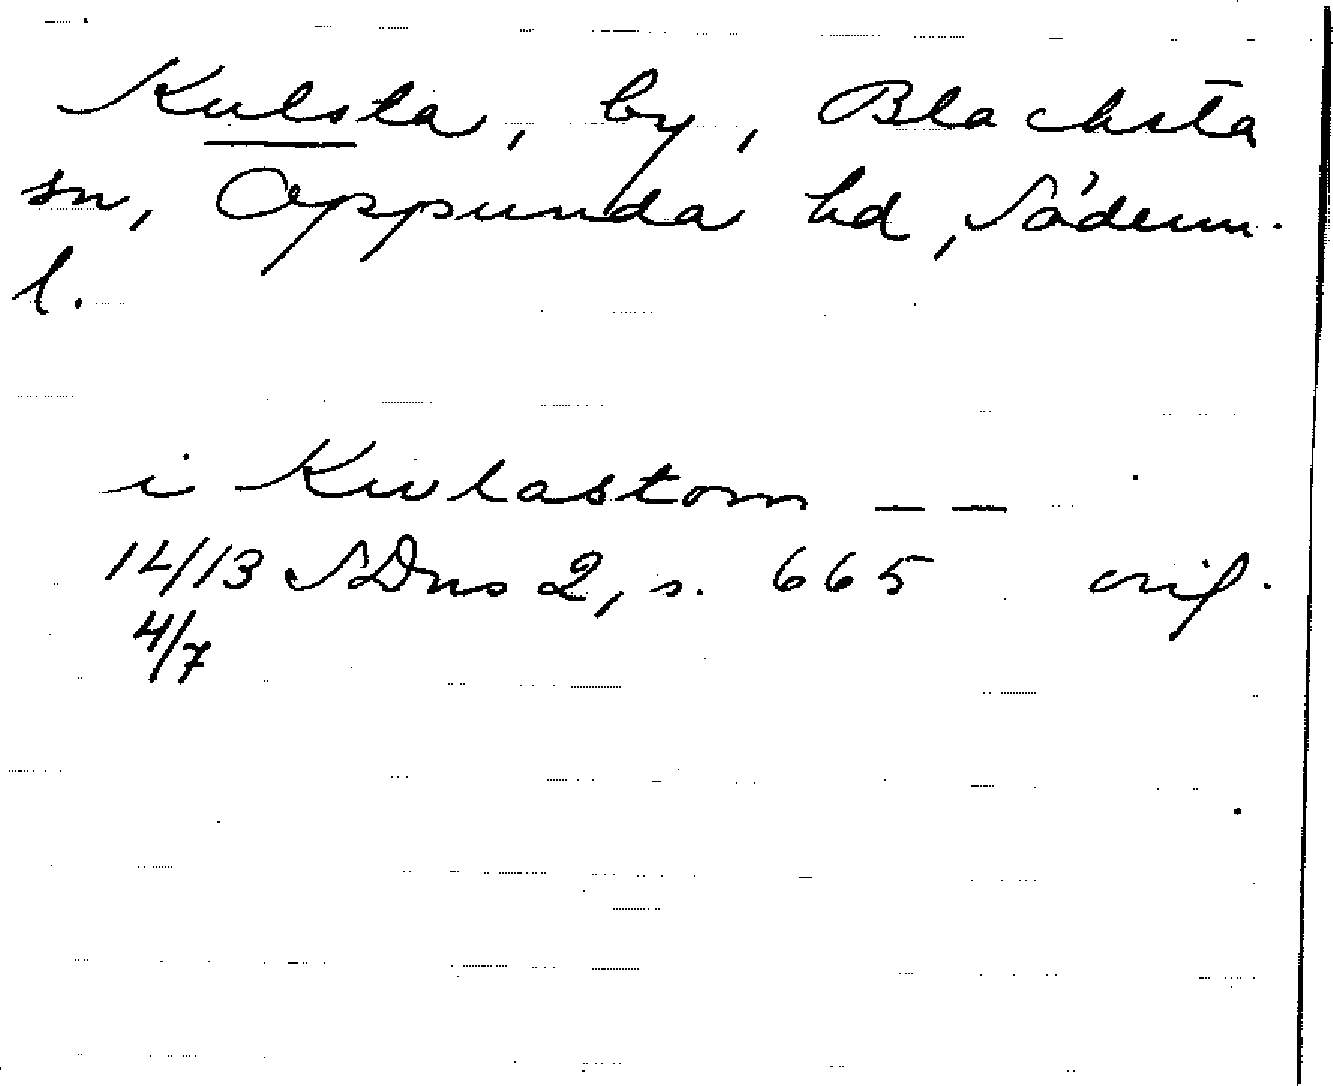 Kulsta, by, Blacksta
sn, Oppunda hd, Söderm.
l.
i Kwlastom — —
14/13 SDns 2, s. 665 orig.
4/7